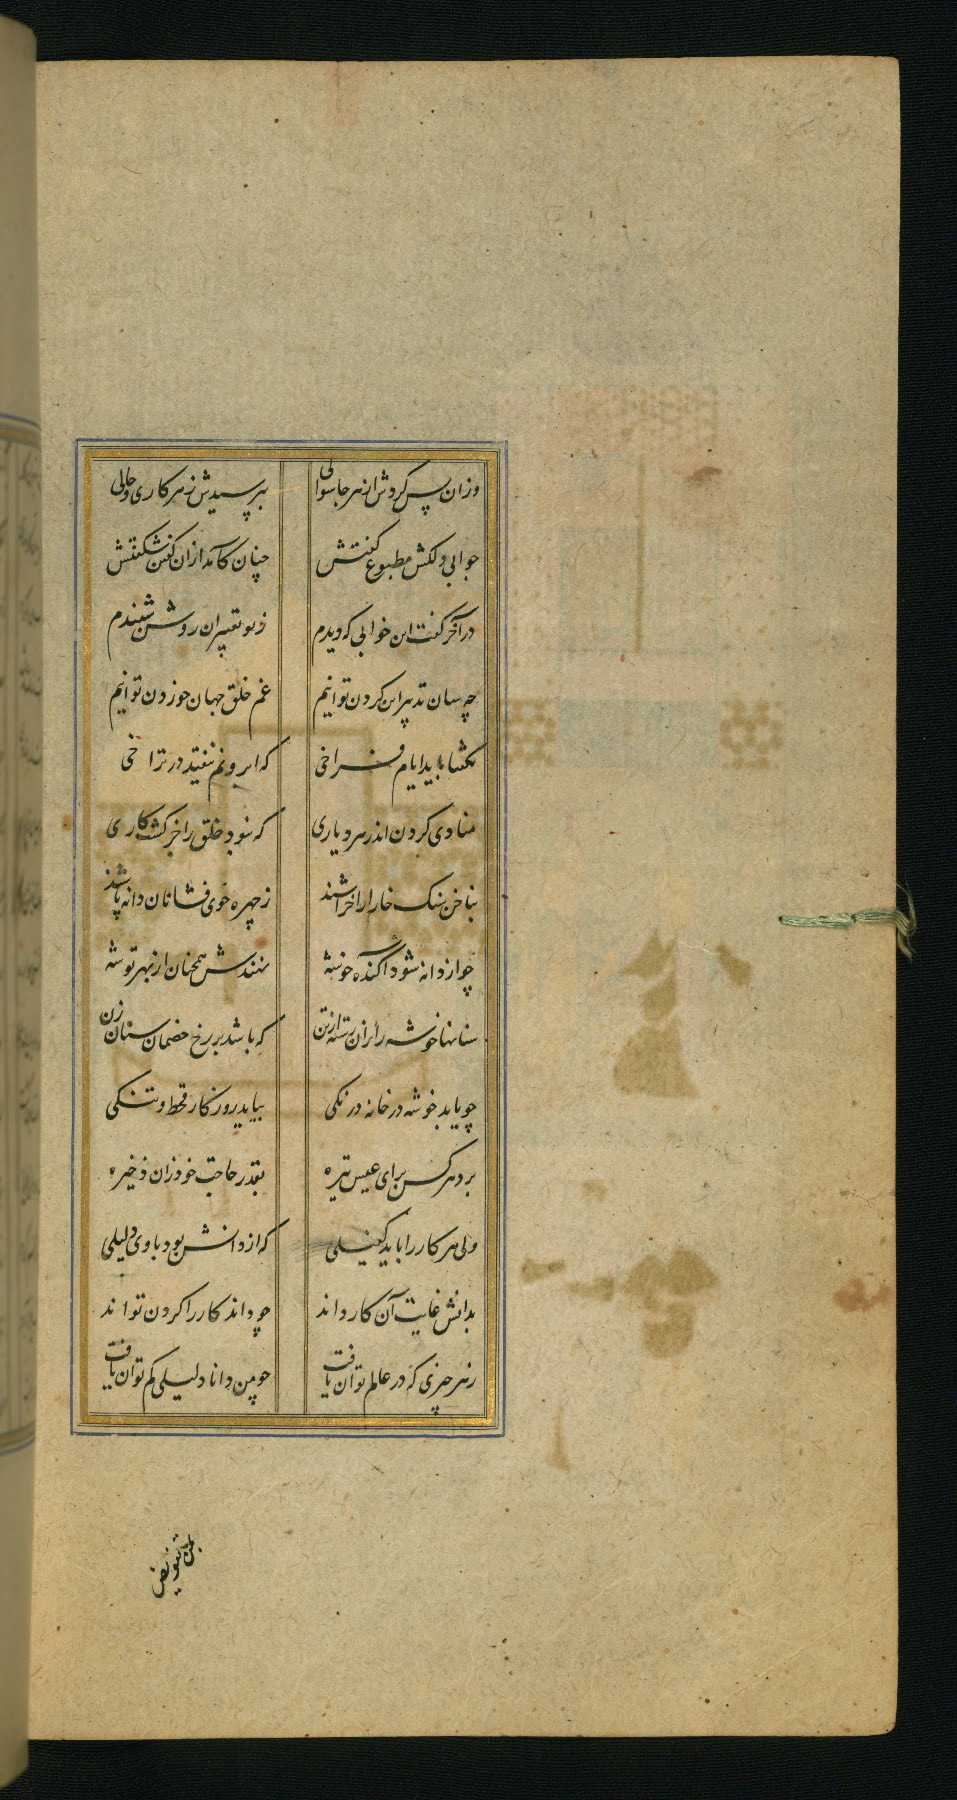 وزان پس کردش از هر جا سوالی بپرسیدش ز هر کاری و حالی
جوابی دلکش مطبوع گفتش چنان کآمد ازان گفتن شگفتش
در آخر گفت این خوابی که دیدم ز تو تعبیر ان روشن شنیدم
چه سان تدبیر این کردن توانیم غم خلق جهان خوردن توانیم
بگفتا باید ایام فراخی که ابر و نم نیفتد در تراخی
منادی کردن اندر هر دیاری که نبود خلق را جز کشت کاری
بناخن سنک خارا را خراشند ز چهره خوی فشانان دانه پاشند
چو از دانه شود آکنده خوشه نهندش همچنان از بهر توشه
سنانها خوشه را زان رسته از تن که باشد بر رخ خصمان سنان زن
چو یابد خوشه در خانه درنکی بیاید روزکار قحط و تنکی
برد هر کس برای عیش تیره بقدر حاجت خود زان ذخیره
ولی هر کار را باید کفیلی که از دانش بود با وی دلیلی
بدانش غایت آن کار داند چو داند کار را کردن تواند
ز هر چیزی که در عالم توان یافت چو من دانا دلیلی کم توان یافت
بمن تفویض